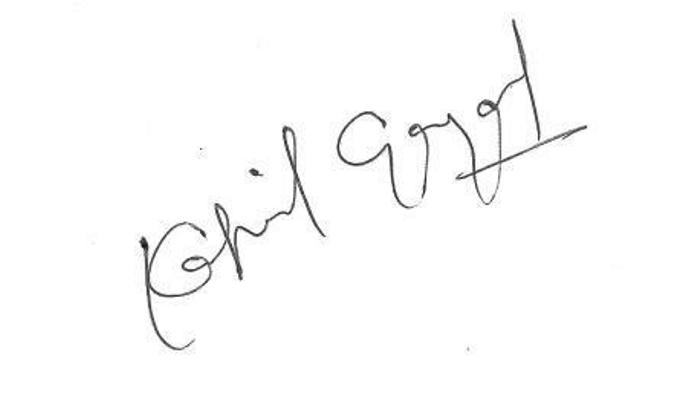 Kapil Goyal